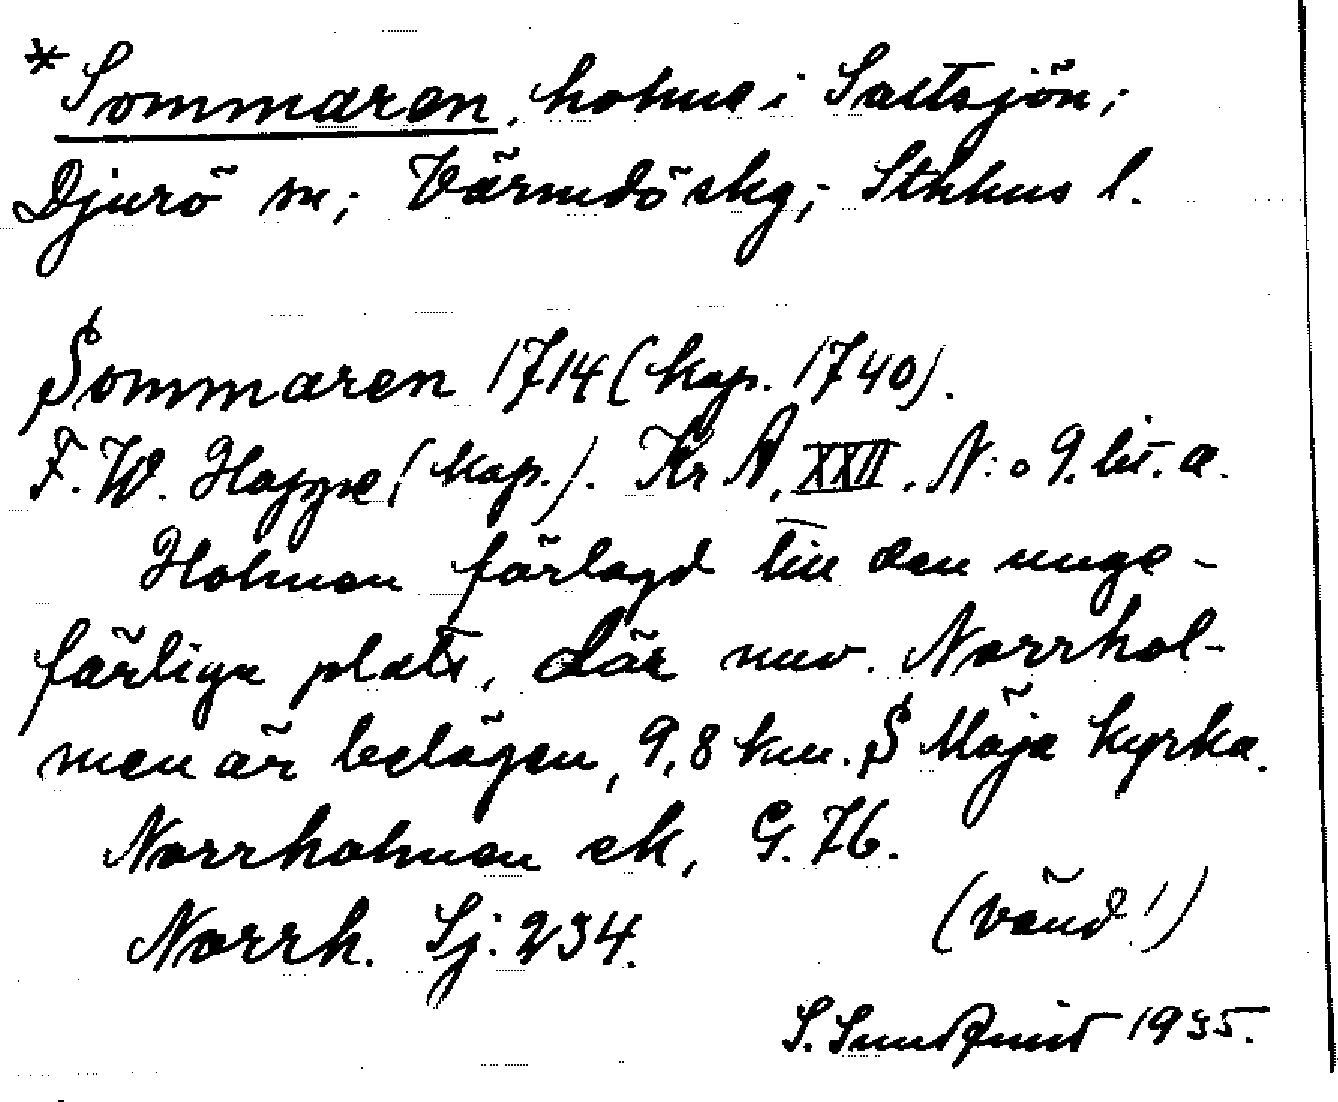 *Sommaren, holme i Saltsjön;
Djurö sn; Värmdö skg; Sthlms l.
Sommaren 1714 (kop. 1740).
F. W. Happe (kop.). Kr A, XXII. N:o 9. lit. a.
Holmen förlagd till den unge-
färliga plats, där nuv. Norrhol-
men är belägen, 9,8 km. S Möja kyrka.
Norrholmen ek, G. 76.
Norrh. Sj: 234.
(vänd!)
S. Sundqvist 1935.